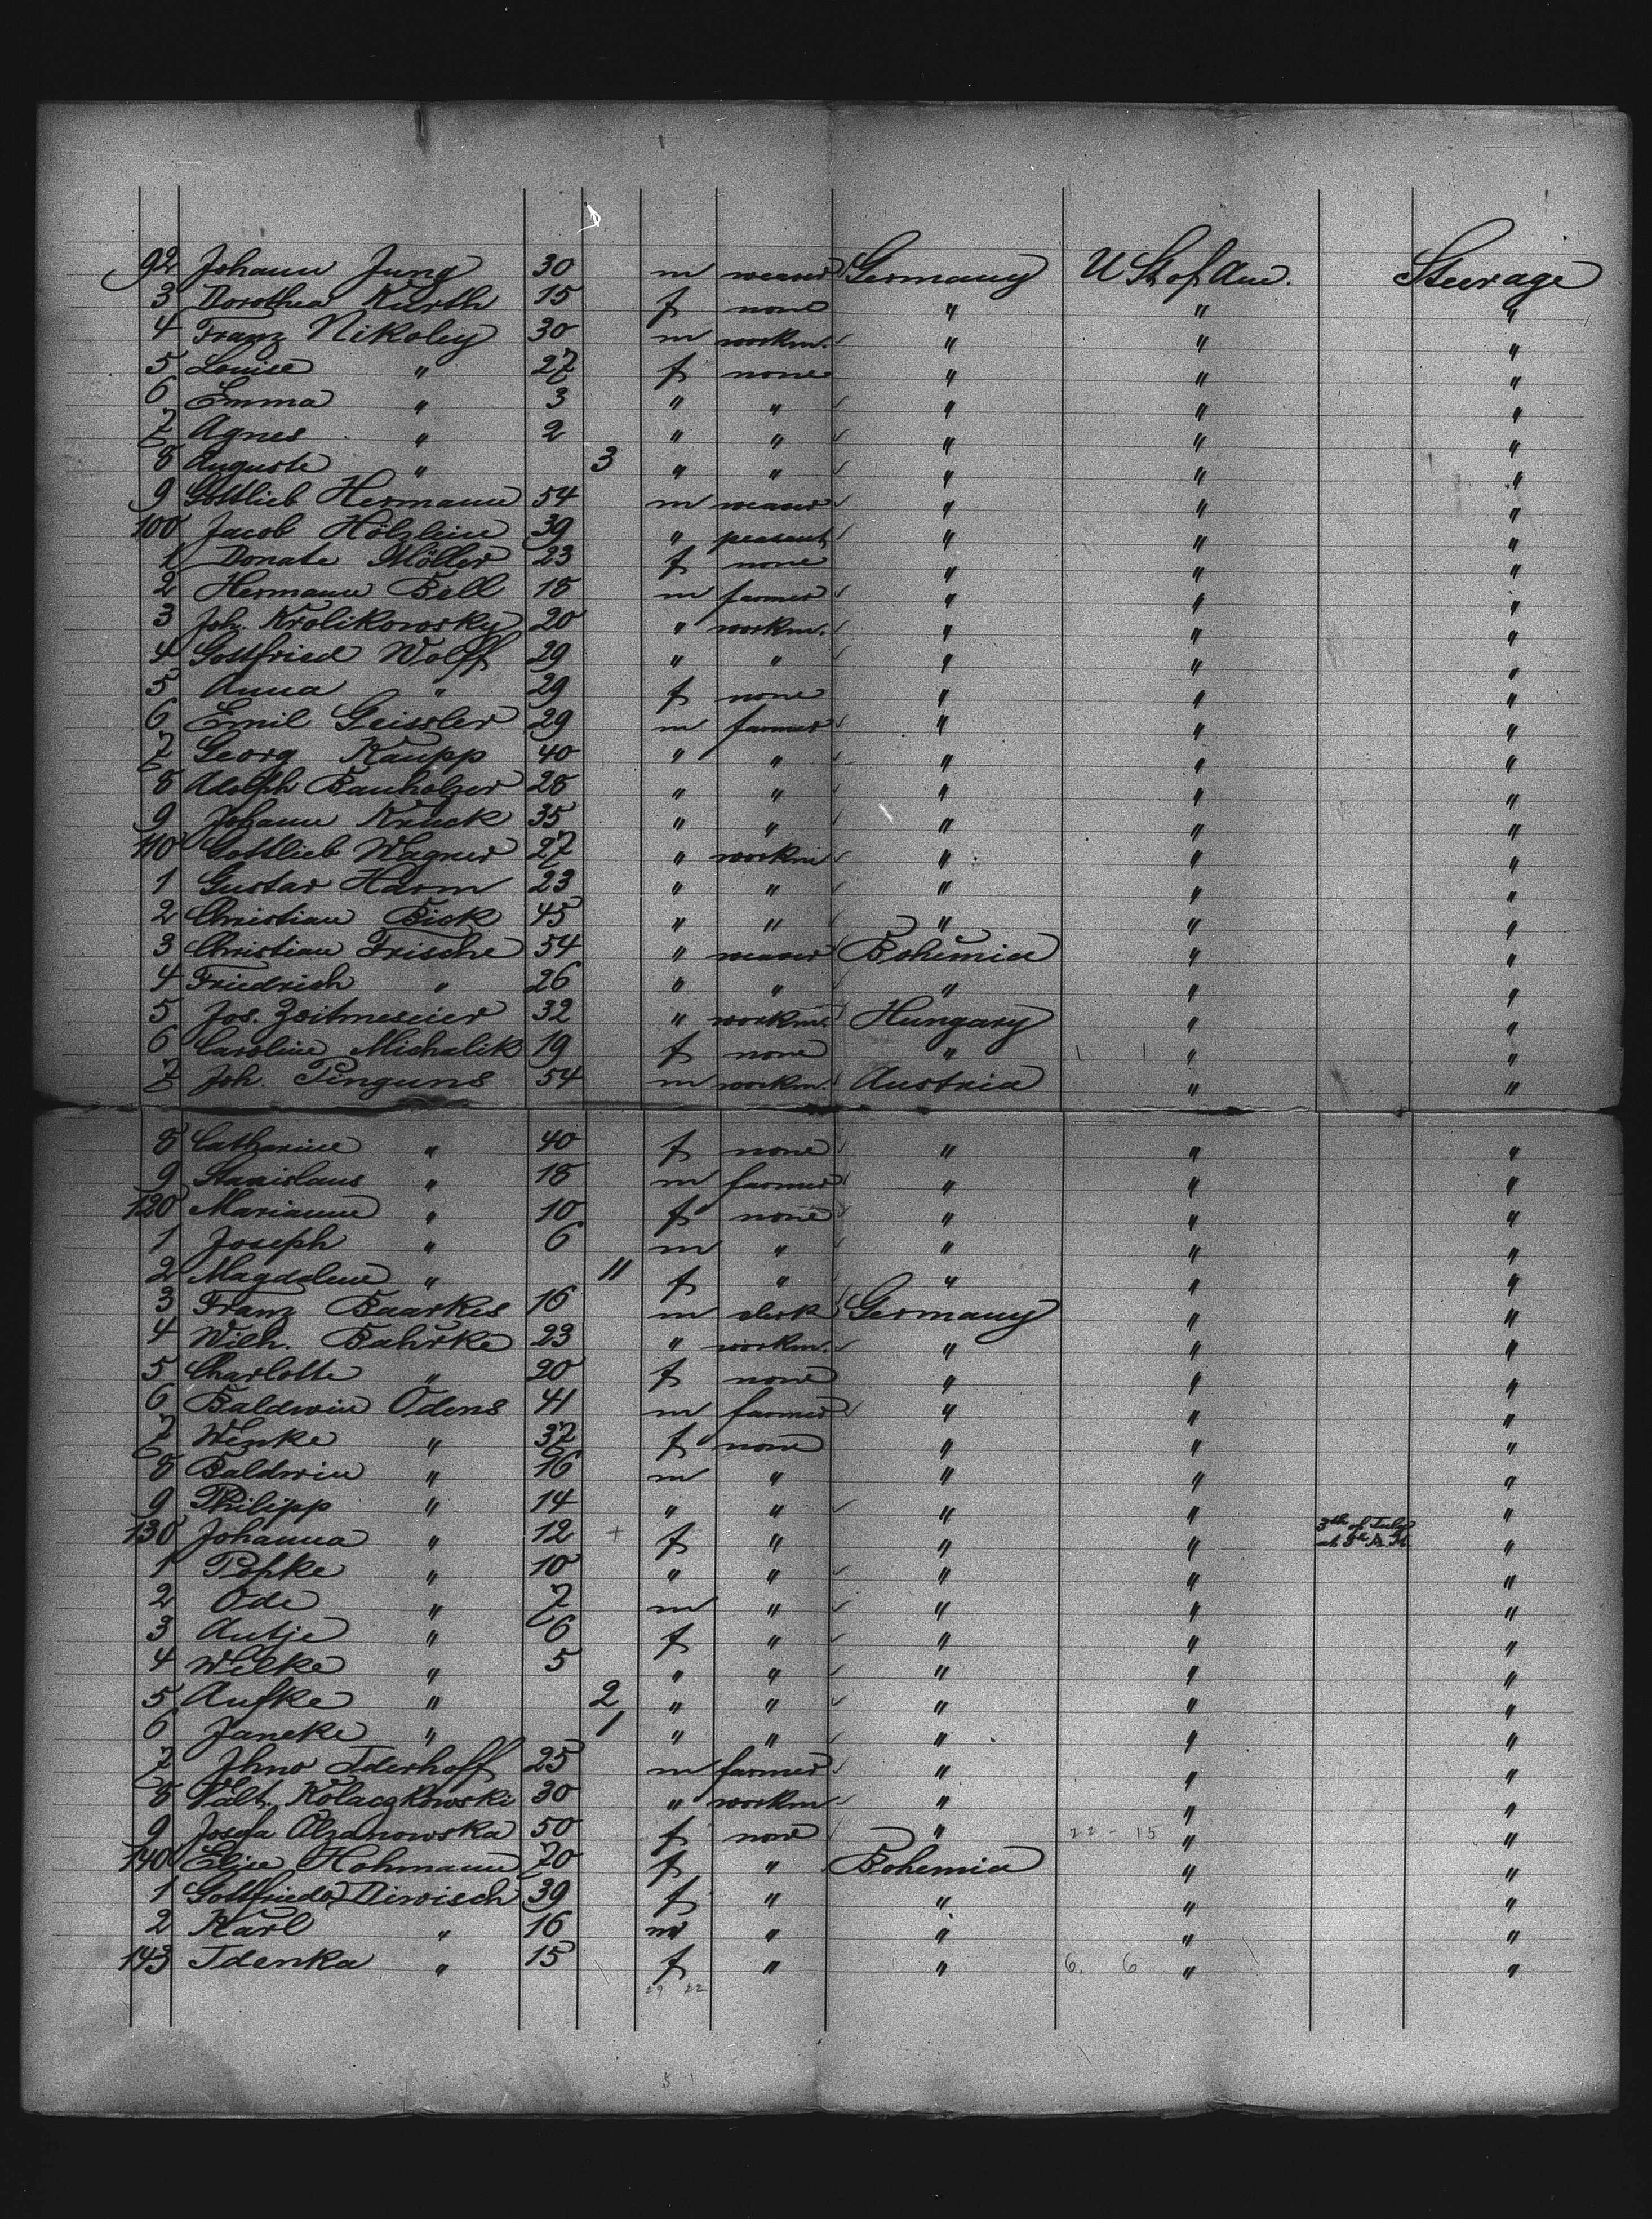 92 Johann Jung 30 m weaver Germany U St of Am. Steerage
3 Dorothea Kürth 15 f none " " "
4 Franz Nikoley 30 m workm. " " "
5 Louise " 27 f none " " "
6 Emma " 3 " " " " "
7 Agnes " 2 " " " " "
8 Auguste " 3 " " " " "
9 Gottlieb Hermann 54 m weaver " " "
100 Jacob Hölzlein 39 " peasant " " "
1 Donate Möller 23 f none " " "
2 Hermann Bell 18 m farmer " " "
3 Joh. Krolikowsky 20 " workm. " " "
4 Gottfried Wolff 29 " " " " "
5 Anna " 29 f none " " "
6 Emil Geissler 29 m farmer " " "
7 Georg Kaupp 40 " " " " "
8 Adolph Bauholzer 28 " " " " "
9 Johann Kruck 35 " " " " "
110 Gottlieb Wagner 27 " workm " " "
1 Gustav Harm 23 " " " " "
2 Christian Bick 45 " " " " "
3 Christian Frische 54 " weaver Bohemia " "
4 Friedrich " 26 " " " " "
5 Jos. Zeitmeseier 32 " workm. Hungary " "
6 Caroline Michalik 19 f none " " "
7 Joh. Pinguns 54 m workm. Austria " "
8 Catharine " 40 f none " " "
9 Stanislaus " 18 m farmer " " "
120 Marianne " 10 f none " " "
1 Joseph " 6 m " " " "
2 Magdalene " 11 f " " " "
3 Franz Baarkes 16 m clerk Germany " "
4 Wilh. Bahrke 23 " workm. " " "
5 Charlotte " 20 f none " " "
6 Baldwin Odens 41 m farmer " " "
7 Wenke " 37 f none " " "
8 Baldwin " 16 m " " " "
9 Philipp " 14 " " " " "
130 Johanna " 12 + f " " " 3th of July at 5h A. M. "
1 Popke " 10 " " " " "
2 Ode " 7 m " " " "
3 Antje " 6 f " " " "
4 Wilke " 5 " " " " "
5 Aufke " 2 " " " " "
6 Janeke " 1 " " " " "
7 Jhno Iderhoff 25 m farmer " " "
8 Valt. Kolaczkowski 30 " workm " " "
9 Josefa Olzanowska 50 f none " 22 - 15 " "
140 Elise Hohmann 70 f " Bohemia " "
1 Gottfrieda Diwisch 39 f " " " "
2 Karl " 16 m " " " "
143 Idenka " 15 f " " 6. 6 " "
29 22